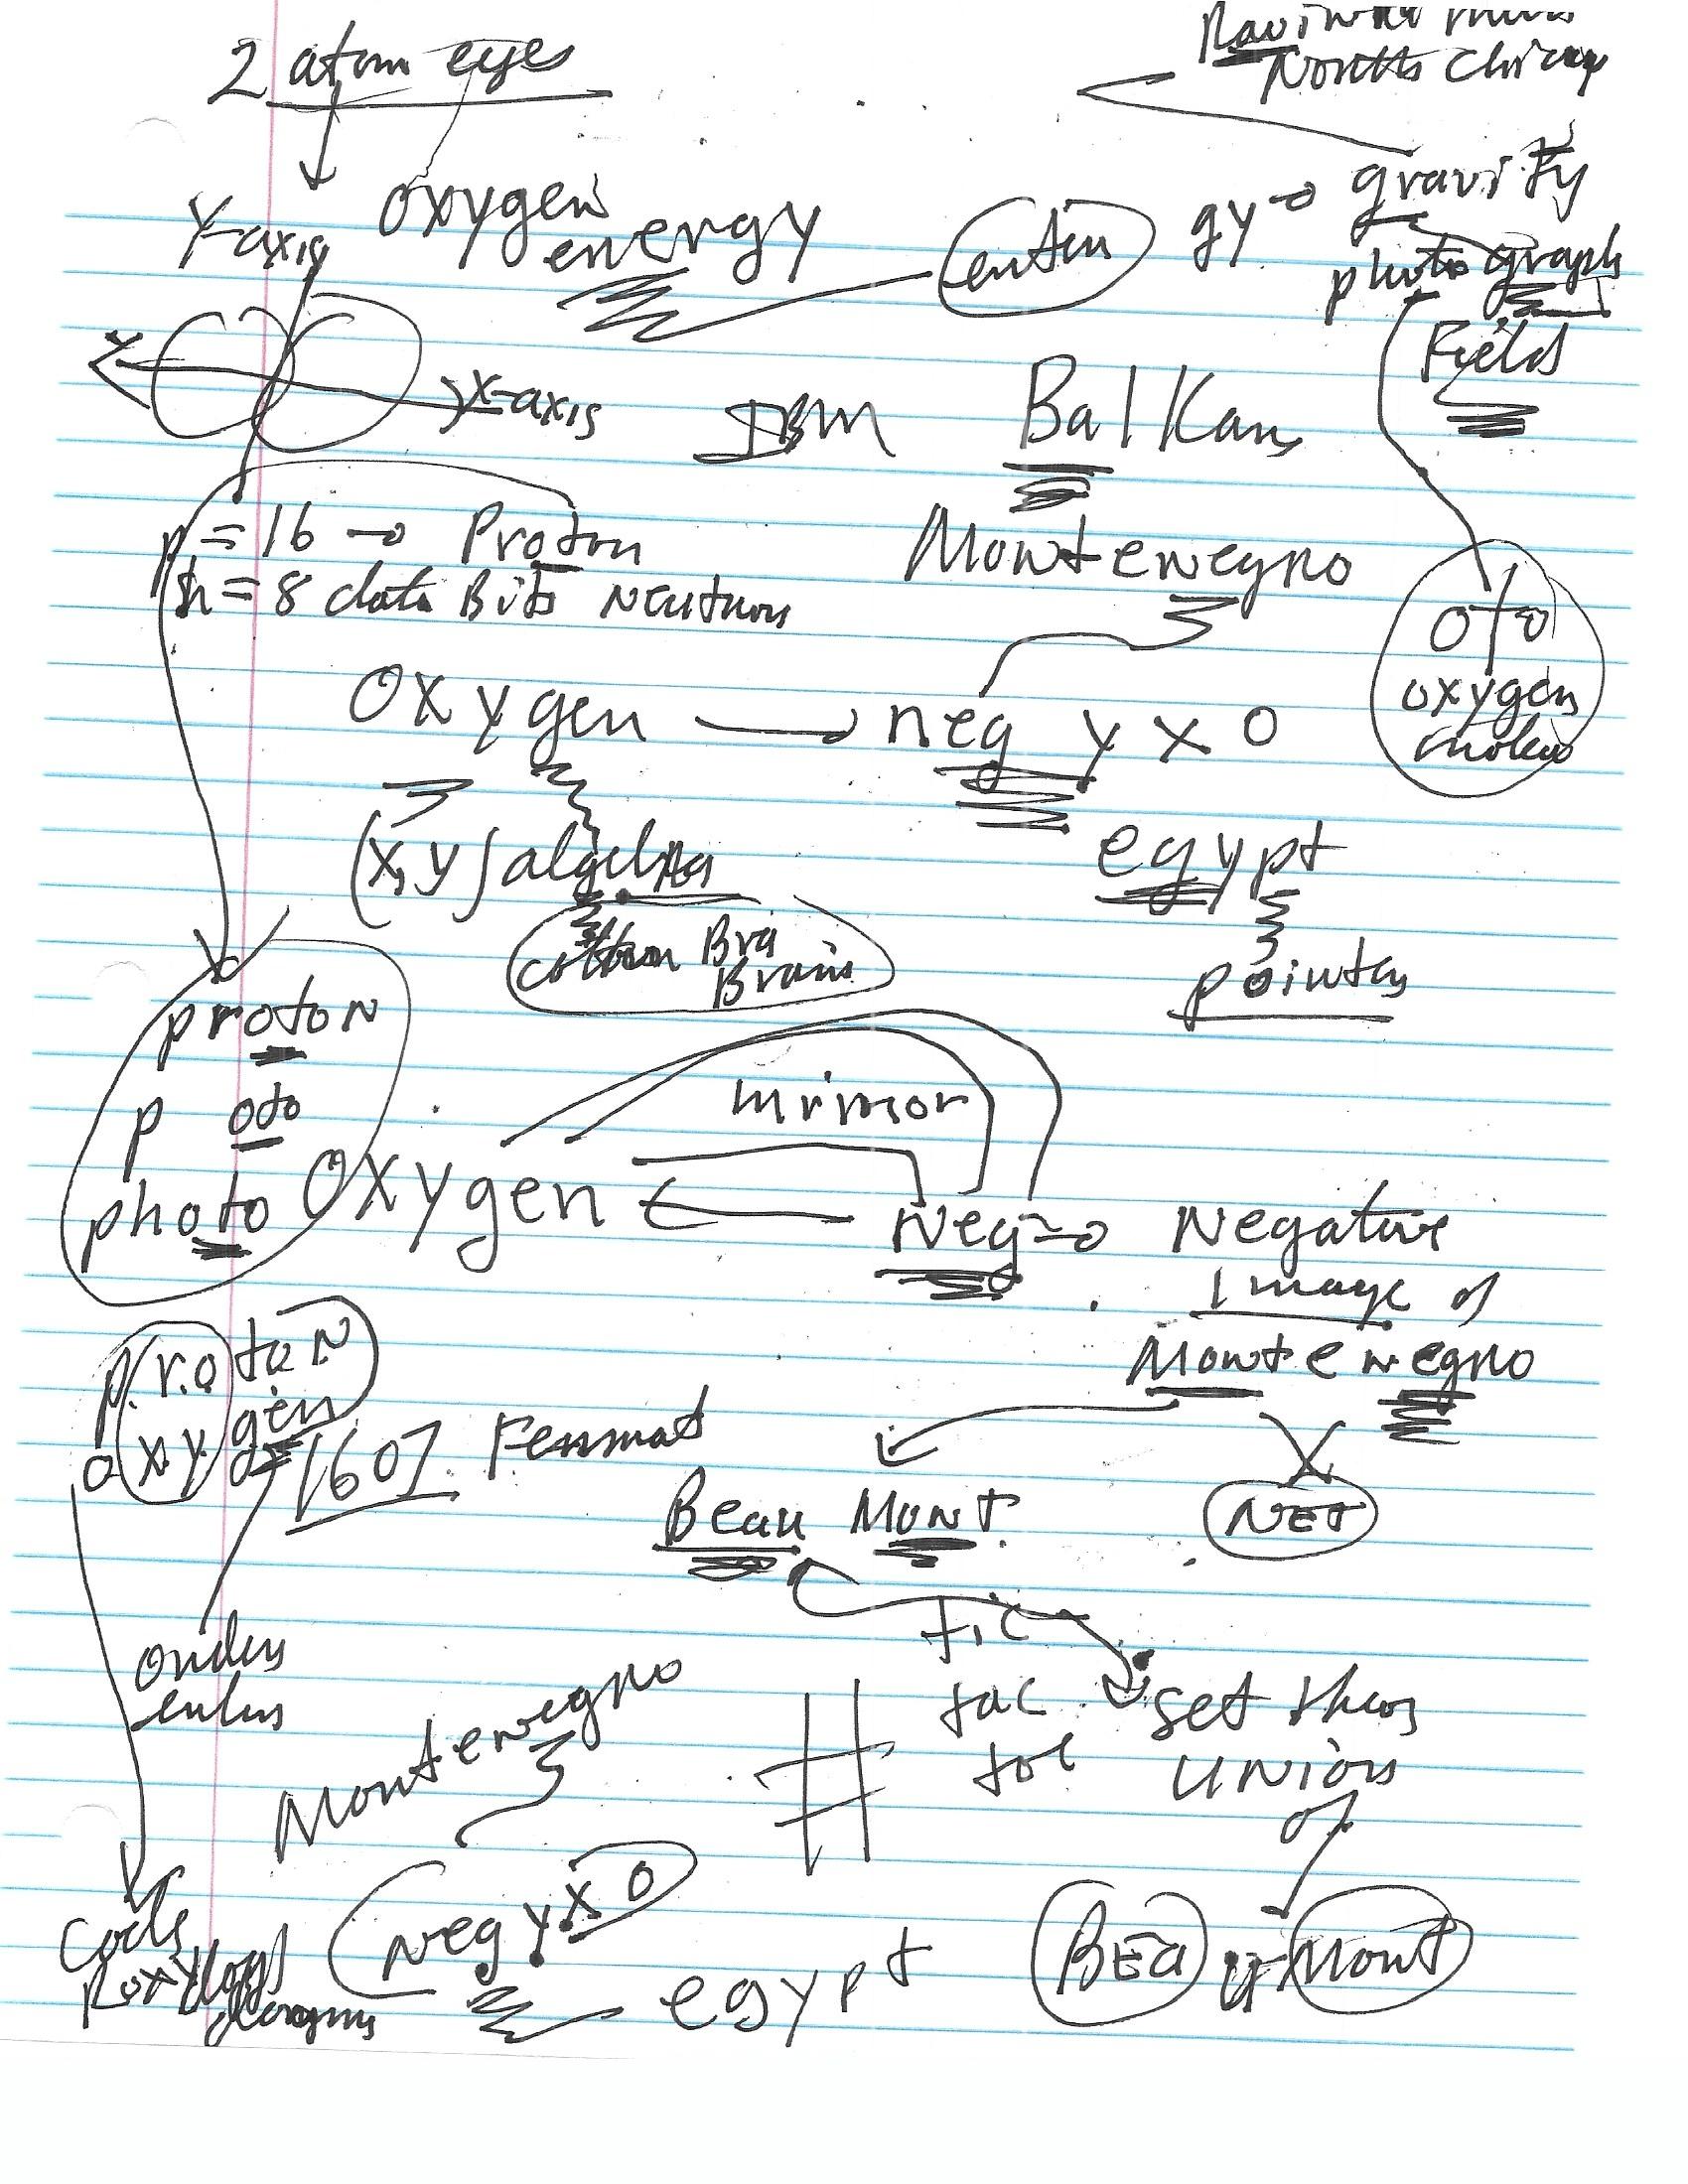 2 atom eyes
North Chicago
Y-axis oxygen energy gy → gravity
photograph
Field
x-axis IBM Balkans
p = 16 → Proton
n = 8 data Bits Neutron
Montenegro
oto
oxygen
Oxygen → neg y x o
(x, y) algebra
egypt
cotton Bra
Brain
pointer
proton
p oto
photo
mirror
Oxygen ← Neg → Negative
Image of
Montenegro
proton
oxygen
1607 Fermat
Beau Mont.
NET
tic
tac
toe
set theory
union
of
Montenegro
Neg y x o
egypt
Code
Bea u Mont